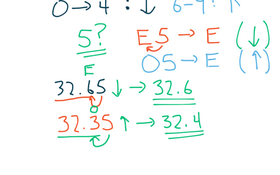 0 → 4 : ↓ 6-9 : ↑
5? E5 → E (↓)
E O5 → E (↑)
32.65 ↓ → 32.6
O
32.35 ↑ → 32.4